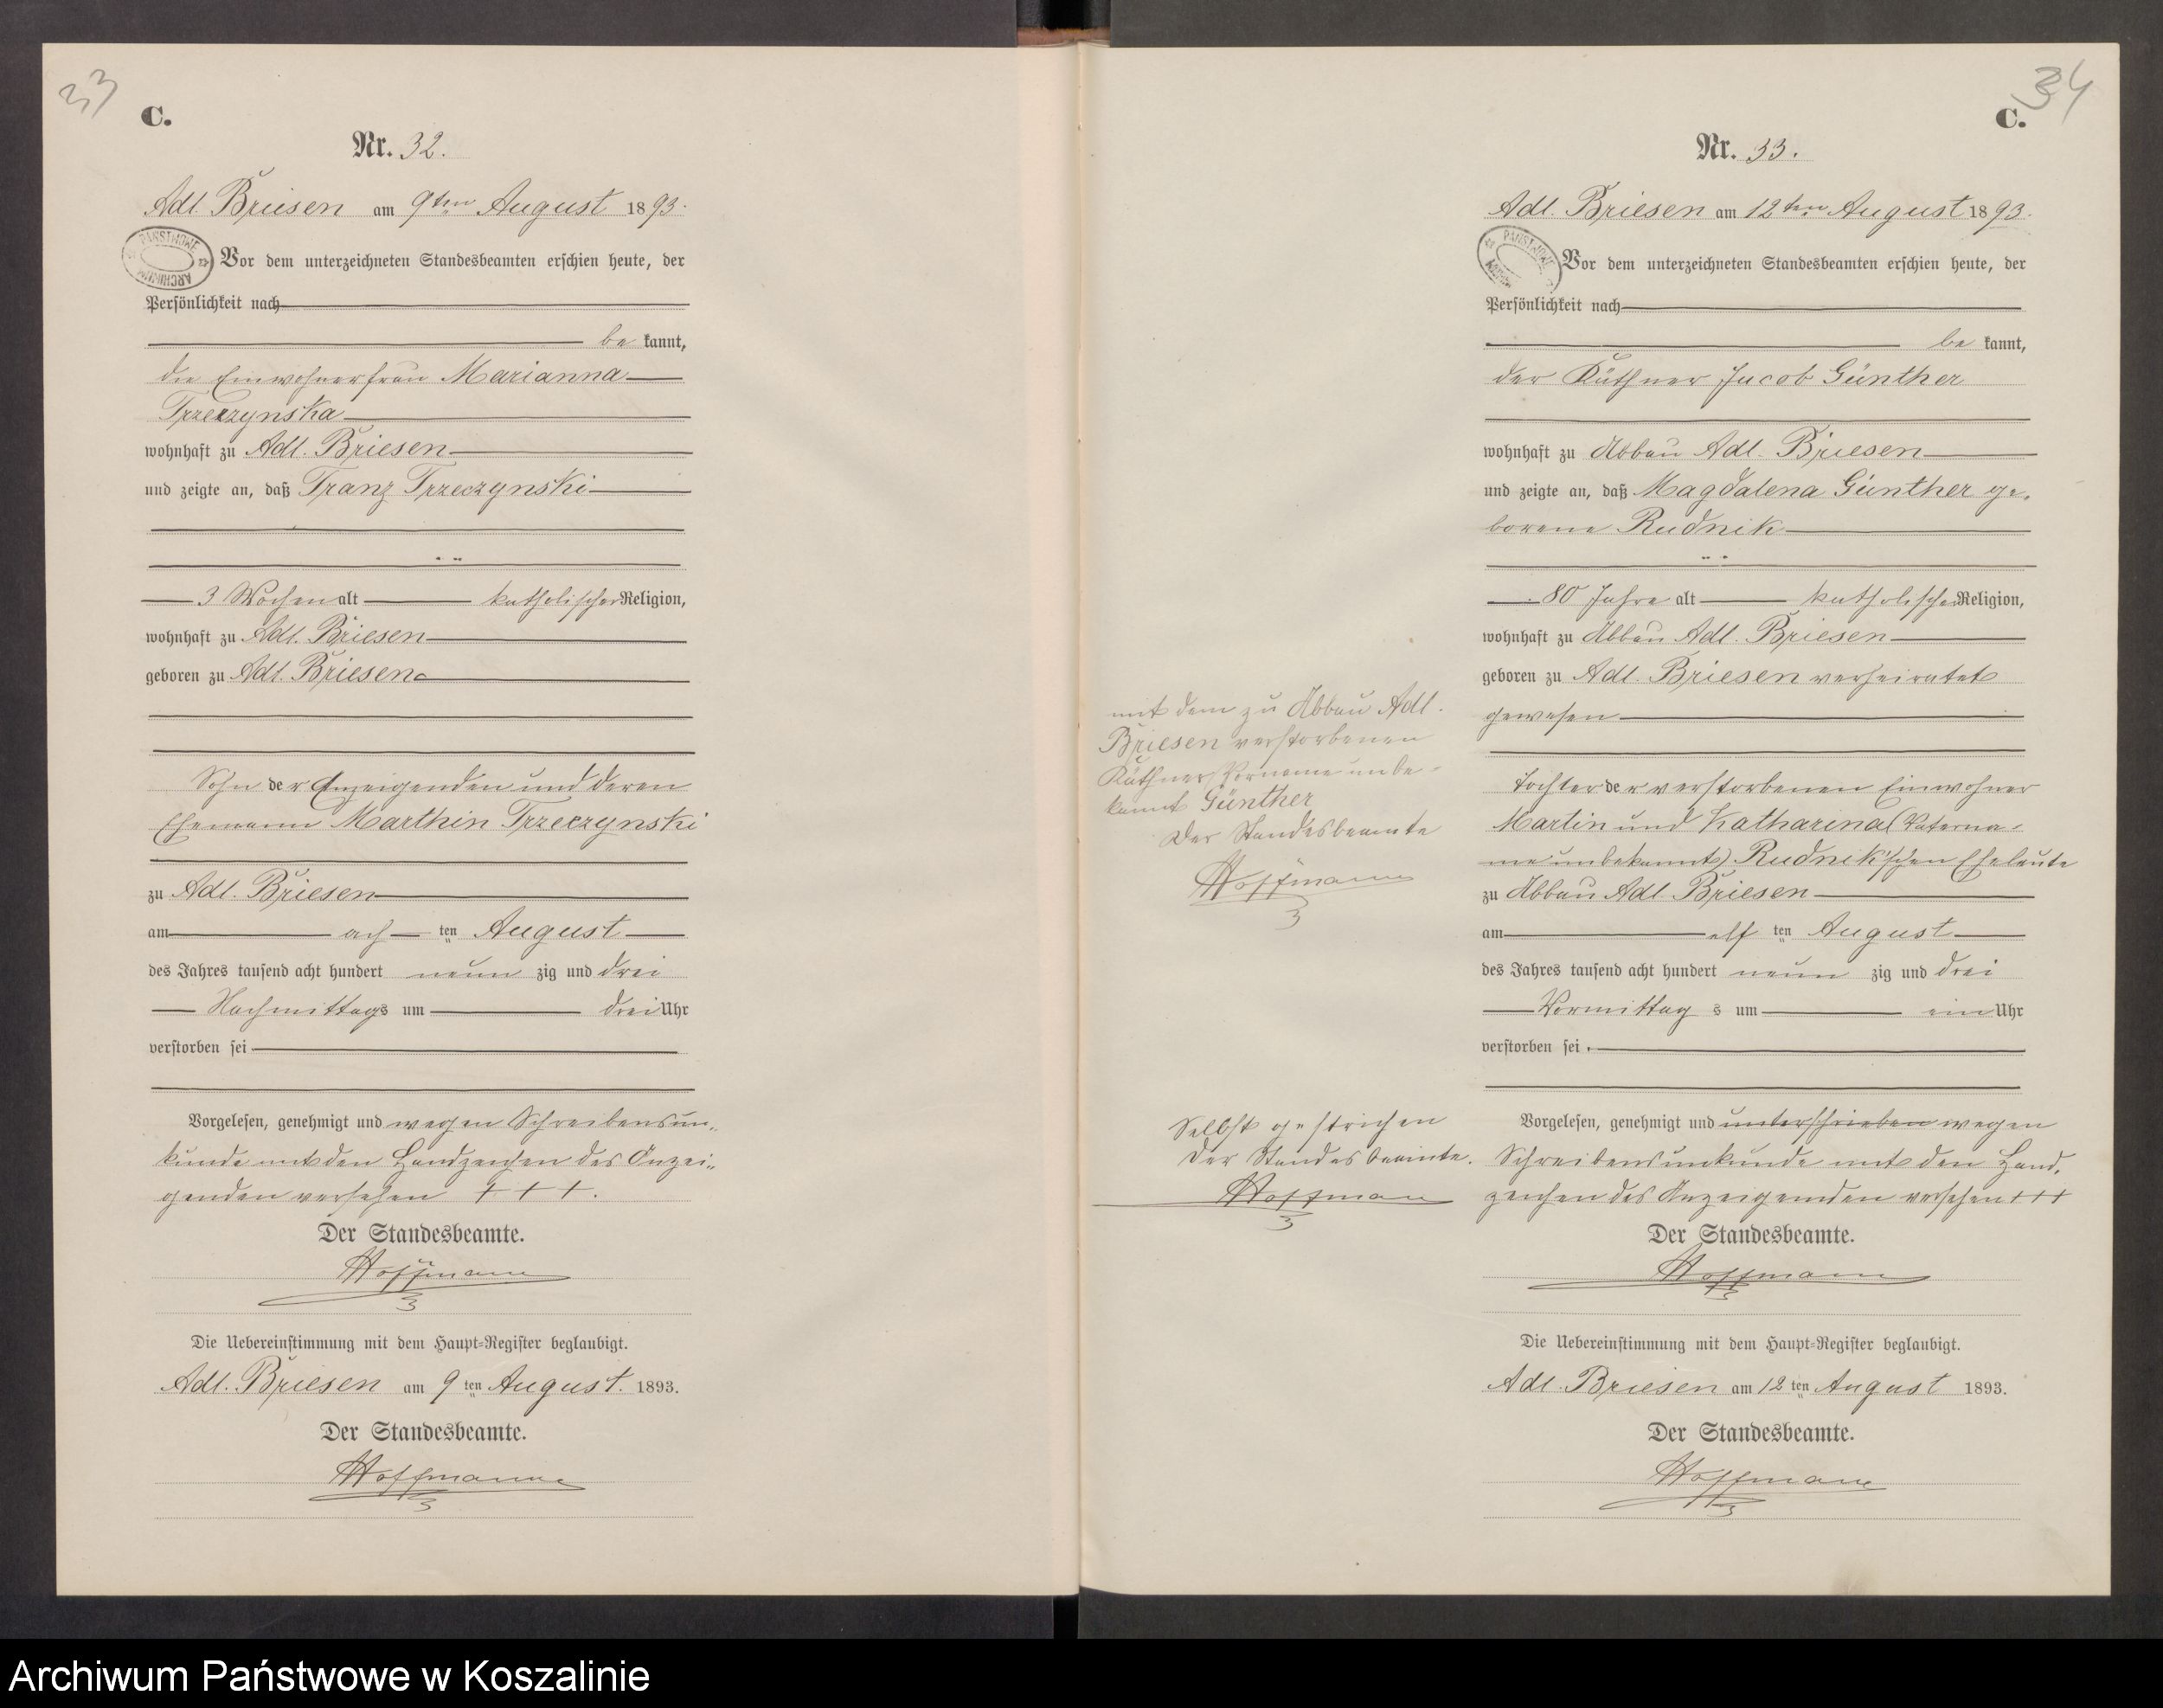 33
C.
Nr. 32.
Adl. Briesen am 9ten August 1893.
PAŃSTWOWE ARCHIWUM
Vor dem unterzeichneten Standesbeamten erschien heute, der
Persönlichkeit nach
be kannt,
die Einwohnerfrau Marianna
Trzeczynska
wohnhaft zu Adl. Briesen
und zeigte an, daß Franz Trzeczynski
3 Wochen alt katholischer Religion,
wohnhaft zu Adl. Briesen
geboren zu Adl. Briesen
Sohn der Anzeigenden und deren
Ehemann Marthin Trzeczynski
zu Adl. Briesen
am ach ten August
des Jahres tausend acht hundert neun zig und drei
Nachmittags um drei Uhr
verstorben sei
Vorgelesen, genehmigt und wegen Schreibensun„
kunde mit den Handzeichen des Anzei„
genden versehen + + +.
Der Standesbeamte.
Hoffmann
Die Uebereinstimmung mit dem Haupt=Register beglaubigt.
Adl. Briesen am 9 ten August. 1893.
Der Standesbeamte.
Hoffmann
34
C.
Nr. 33.
Adl. Briesen am 12ten August 1893.
PAŃSTWOWE
Vor dem unterzeichneten Standesbeamten erschien heute, der
Persönlichkeit nach
be kannt,
der Käthner Jacob Günther
wohnhaft zu Abbau Adl. Briesen
und zeigte an, daß Magdalena Günther ge.
borene Rudnik
80 Jahre alt katholischer Religion,
wohnhaft zu Abbau Adl. Briesen
geboren zu Adl. Briesen verheiratet
gewesen
mit dem zu Abbau Adl.
Briesen verstorbenen
Käthner Vorname unbe-
kannt Günther
Der Standesbeamte
Hoffmann
Tochter der verstorbenen Einwohner
Martin und Katharina (Vaterna-
me unbekannt) Rudnik'schen Eheleute
zu Abbau Adl. Briesen
am elf ten August
des Jahres tausend acht hundert neun zig und drei
Vormittag s um ein Uhr
verstorben sei.
Selbst gestrichen
Der Standesbeamte.
Hoffmann
Vorgelesen, genehmigt und unterschrieben wegen
Schreibensunkunde mit den Hand.
zeichen des Anzeigenden versehen + + +
Der Standesbeamte.
Hoffmann
Die Uebereinstimmung mit dem Haupt=Register beglaubigt.
Adl. Briesen am 12 ten August 1893.
Der Standesbeamte.
Hoffmann
Archiwum Państwowe w Koszalinie